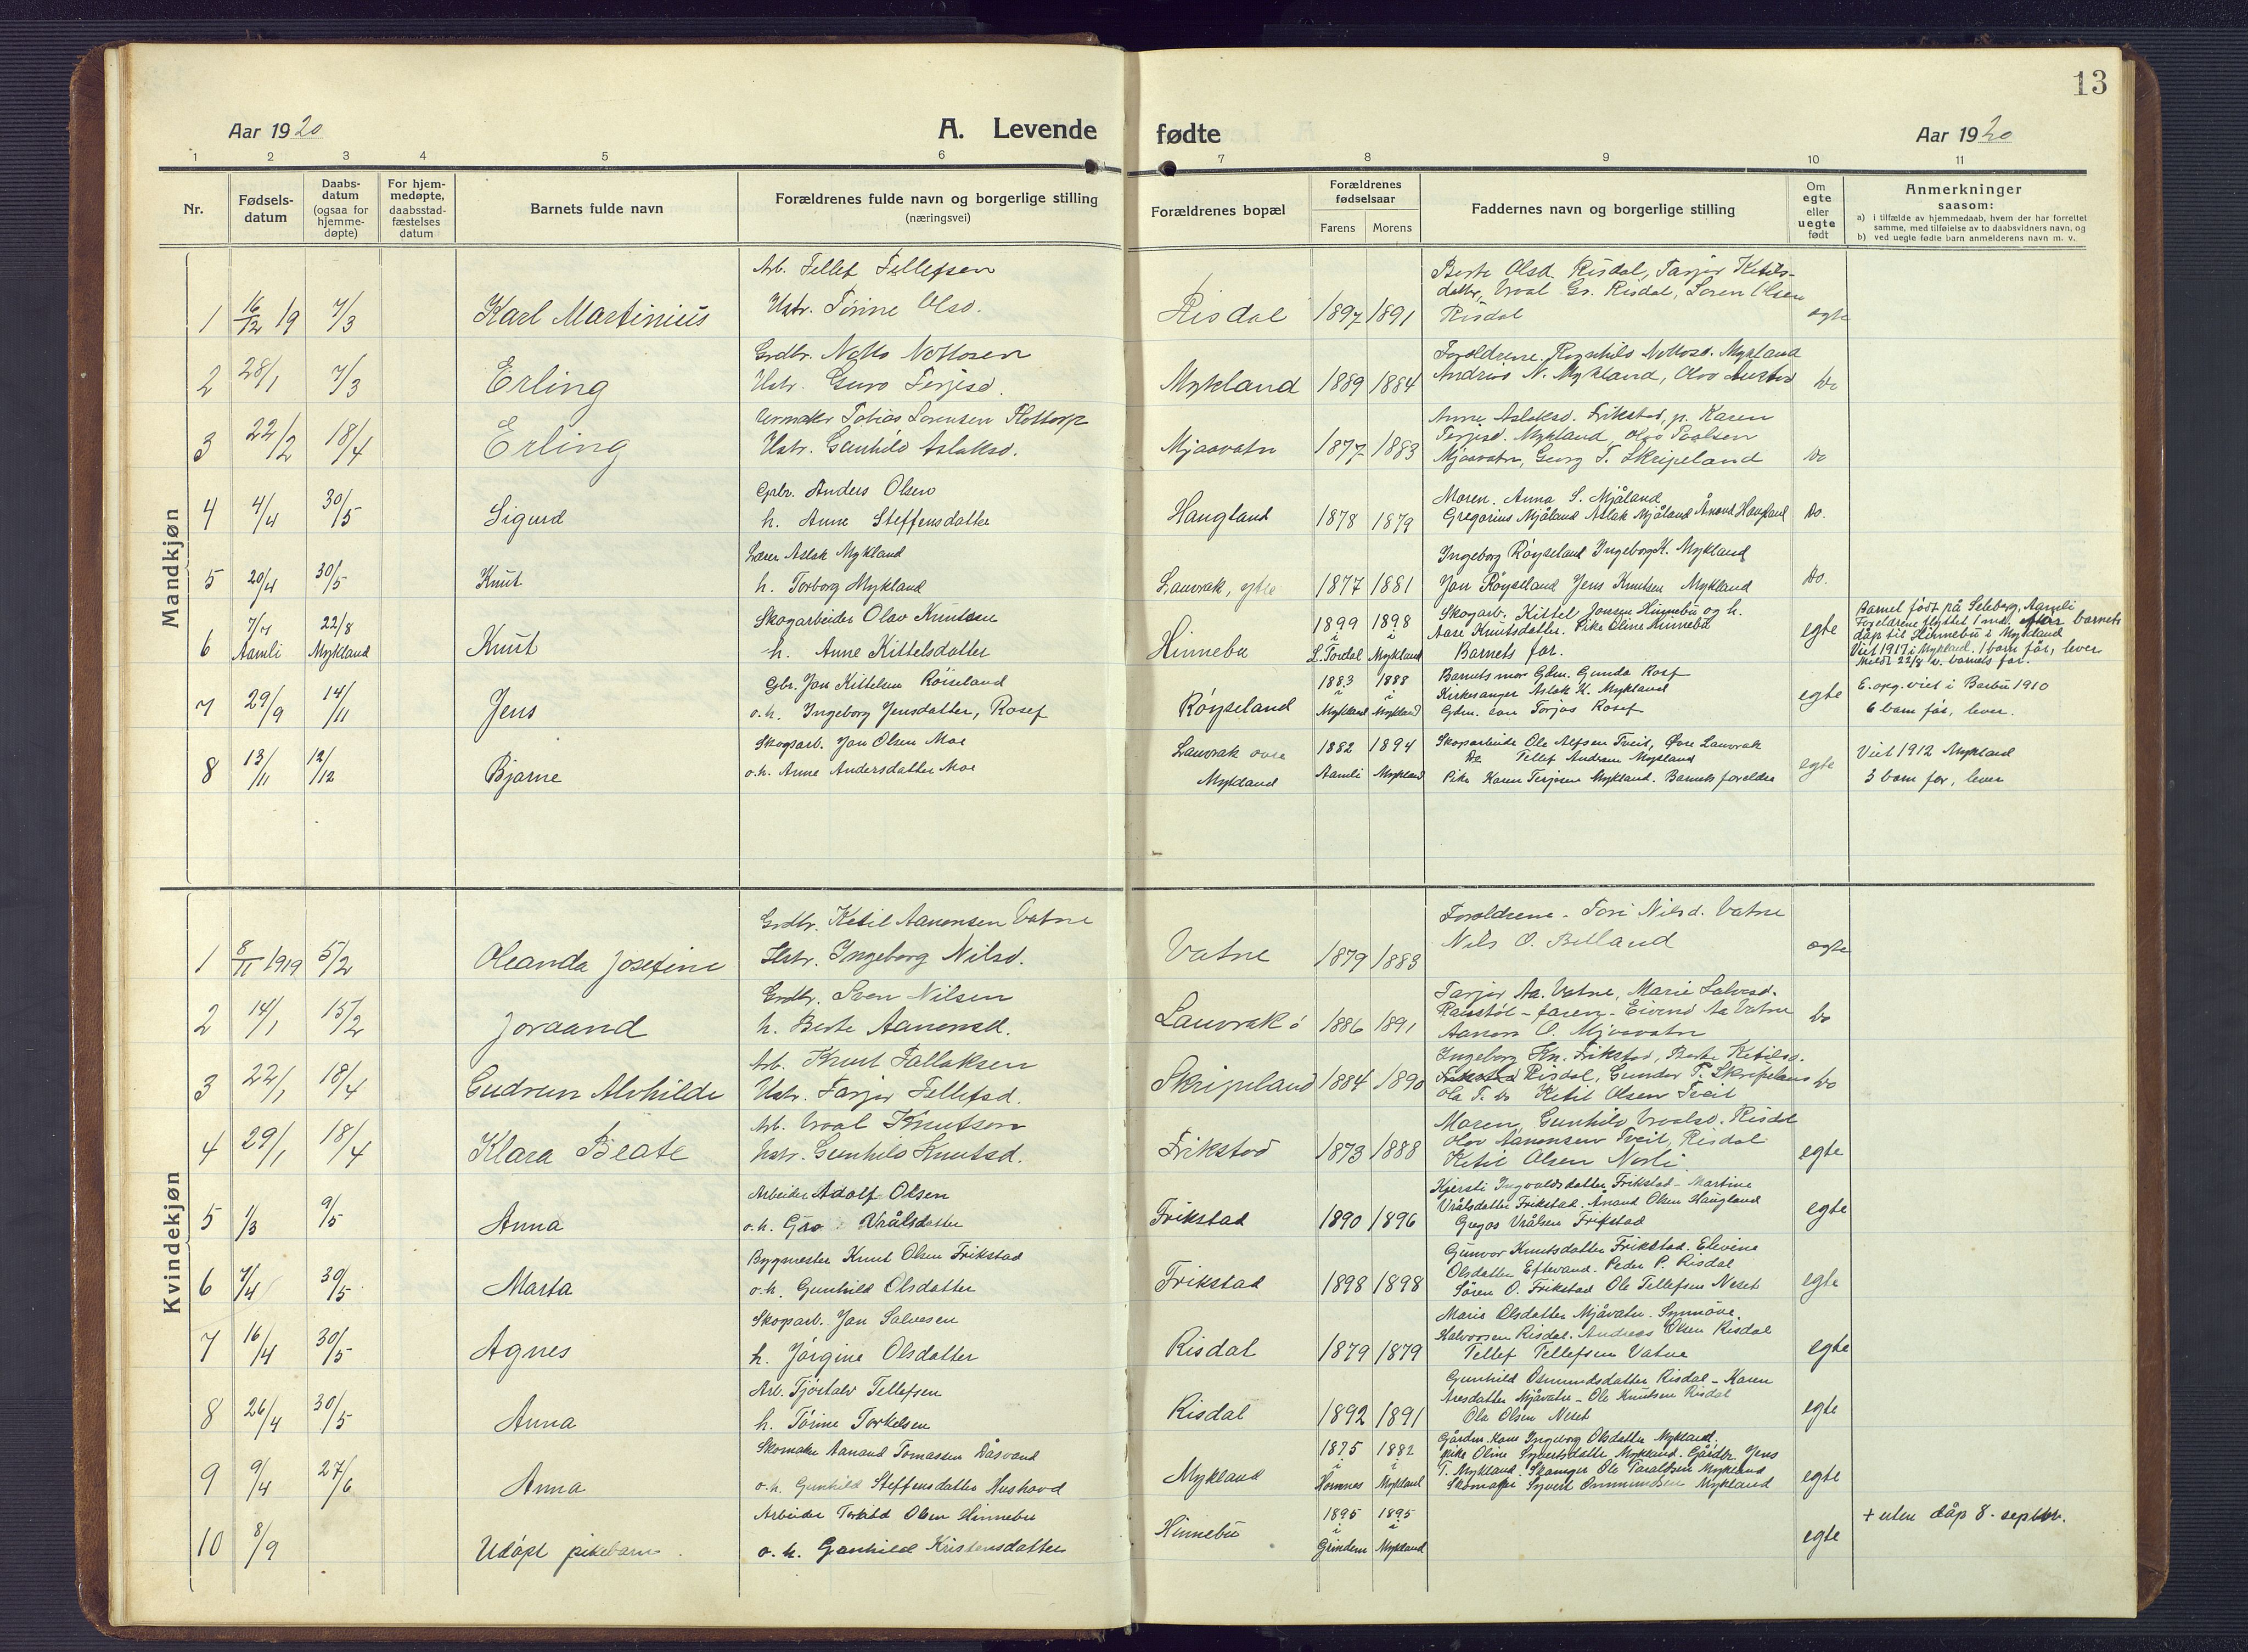 13
Aar 1920
A. Levende fødte
Aar 1920
1 2 3 4 5 6 7 8 9 10 11
Nr.
Fødsels-
datum
Daabs-
datum
(ogsaa for
hjemme-
døpte)
For hjem-
medøpte,
daabsstad-
fæstelses
datum
Barnets fulde navn
Forældrenes fulde navn og borgerlige stilling
(næringsvei)
Forældrenes bopæl
Forældrenes
fødselsaar
Farens Morens
Faddernes navn og borgerlige stilling
Om
egte
eller
uegte
født
Anmerkninger
saasom:
a) i tilfælde av hjemmedaab, hvem der har forrettet
samme, med tilføielse av to daabsvidners navn, og
b) ved uegte fødte barn anmelderens navn m. v.
Mandkjøn
1 16/12 19 7/3 Karl Martinius
Arb. Tellef Tellefsen
Hstr. Tørine Olsd.
Risdal 1897 1891
Berte Olsd. Risdal, Tarjer Ketils-
datter, Vraal Gr. Risdal, Søren Olsen
Risdal
egte
2 28/1 7/3 Erling
Grdbr. Notto Nottosen
Hstr. Guro Terjesd.
Mykland 1889 1884
Forældrene. Ragnhild Nottosd. Mykland
Andreas N. Mykland, Olav
Do
3 22/2 18/4 Erling
Urmaker Tobias Sørensen
Hstr. Gunhild Aslaksd.
Mjaavatn 1877 1883
Anne Aslaksd. Frikstad, p. Karen
Terjesd. Mykland, Olav Paalsen
Mjaavatn, Georg T. Skripeland
Do
4 4/4 30/5 Sigurd
Grbr. Anders Olsen
h. Anne Steffensdatter
Haugland 1878 1879
Moren. Anna S. Mjåland
Gregorius Mjåland Aslak Mjåland Ånond Haugland
Do.
5 20/4 30/5 Knut
Lærer Aslak Mykland
h. Torborg Mykland
Lauvrak, ytre 1877 1881
Ingeborg Røyseland Ingeborg K. Mykland
Jon Røyseland Jens Knutsen Mykland
Do.
6 7/7 Aamli 22/8 Mykland Knut
Skogarbeider Olav Knutsen
h. Anne Kittelsdatter
Hinnebu 1899 i L. Tordal 1898 i Mykland
Skogarb. Kittel Jonsen Hinnebu og h.
Aase Knutsdatter. Pike Oline Hinnebu
Barnets far.
egte
Barnet født på Seleberg, Aamli
Foreldrene flyttet 1 md. efter barnets
dåp til Hinnebu i Mykland
Viet 1917 i Mykland. 1 barn før, lever
Meldt 22/8 v. barnets far.
7 29/9 14/11 Jens
Gbr. Jon Kittelsen Røiseland
o.h. Ingeborg Jensdatter, Rosef
Røyseland 1883 i Mykland 1888 i Mykland
Barnets mor Gdm. Gunda Rosef
Kirkesanger Aslak K. Mykland
Gdm. søn Torjus Rosef
egte
E. opg. viet i Barbu 1910
6 barn før, lever.
8 13/11 12/12 Bjarne
Skogsarb. Jon Olsen Moe
o.h. Anne Andersdatter Moe
Lauvrak øvre
Mykland
1882 Aamli 1894 Mykland
Skogarbeider Ole Alfsen Tveit, Øvre Lauvrak
Do Tellef Andersen Mykland
Pike Karen Terjesen Mykland. Barnets foreldre
egte
Viet 1912 Mykland
3 barn før, lever
Kvindekjøn
1 8/11 1919 5/2 Oleanda Josefine
Grdbr. Ketil Aanonsen Vatne
Hstr. Ingeborg Nilsd.
Vatne 1879 1883
Forældrene - Tori Nilsd. Vatne
Nils O. Belland
egte
2 14/1 15/2 Joraand
Grdbr. Sven Nilsen
h. Berte Aanonsd.
Lauvrak ø 1886 1891
Tarjer Aa. Vatne, Marie Salvesd.
Raustøl - faren - Eivind Aa Vatne
Aanon O. Mjaavatn
Do
3 22/1 18/4 Gudrun Alvhilde
Arb. Knut Tallaksen
Hstr. Tarjer Tellefsd.
Skripeland 1884 1890
Ingeborg Kn. Frikstad, Berte Ketilsd.
Risdal, Gunder T. Skripeland
Ola T. Do Ketil Olsen Tveit
Do
4 29/1 18/4 Klara Beate
Arb. Vraal Knutson
Hstr. Gunhild Knutsd.
Frikstad 1873 1888
Moren, Gunhild Vraalsd. Risdal
Olav Aanonsen Tveit, Risdal
Ketil Olsen Norli
egte
5 1/3 9/5 Anna
Arbeider Adolf Olsen
o.h. Gro Vrålsdatter
Frikstad 1890 1896
Kjersti Ingvaldsdatter Frikstad - Martine
Vrålsdatter Frikstad. Ånond Olsen Haugland
Gregos Vrålsen Frikstad
egte
6 7/4 30/5 Marta
Bygmester Knut Olsen Frikstad
o.h. Gunhild Olsdatter
Frikstad 1898 1898
Gunvor Knutsdatter Frikstad. Elevine
Olsdatter Eftevand. Peder P. Risdal
Søren O. Frikstad Ole Tellefsen Neset
egte
7 16/4 30/5 Agnes
Skogarb. Jon Salvesen
h. Jørgine Olsdatter
Risdal 1879 1879
Marie Olsdatter Mjåvatn. Synnøve
Halvorsen Risdal. Andreas Olsen Risdal
Tellef Tellefsen Vatne
egte
8 26/4 30/5 Anna
Arb. Tjøstolv Tellefsen
h. Tørine Torkelsen
Risdal 1892 1891
Gunhild Osmundsdatter Risdal - Karen
Aresdatter Mjåvatn - Ole Knutsen Risdal
Ola Olsen Neset
egte
9 9/4 27/6 Anna
Skomaker Aanand Tomassen Dåsvand
o.h. Gunhild Steffensdatter Hushovd
Mykland 1875 i Hornnes 1882 i Mykland
Gårdm. kone Ingeborg Olsdatter Mykland.
pike Oline Syvertsdatter Mykland. Gårdbr. Jens
T. Mykland. Skomager Ole Taraldsen Mykland
Skomager Syvert Ommundsen Mykland
egte
10 8/9 Udøpt pikebarn.
Arbeider Torkild Olsen Hinnebu
o. h. Gunhild Kristensdatter
Hinnebu 1895 i Grindem 1895 i Mykland
egte
+ uten dåp 8. septbr.